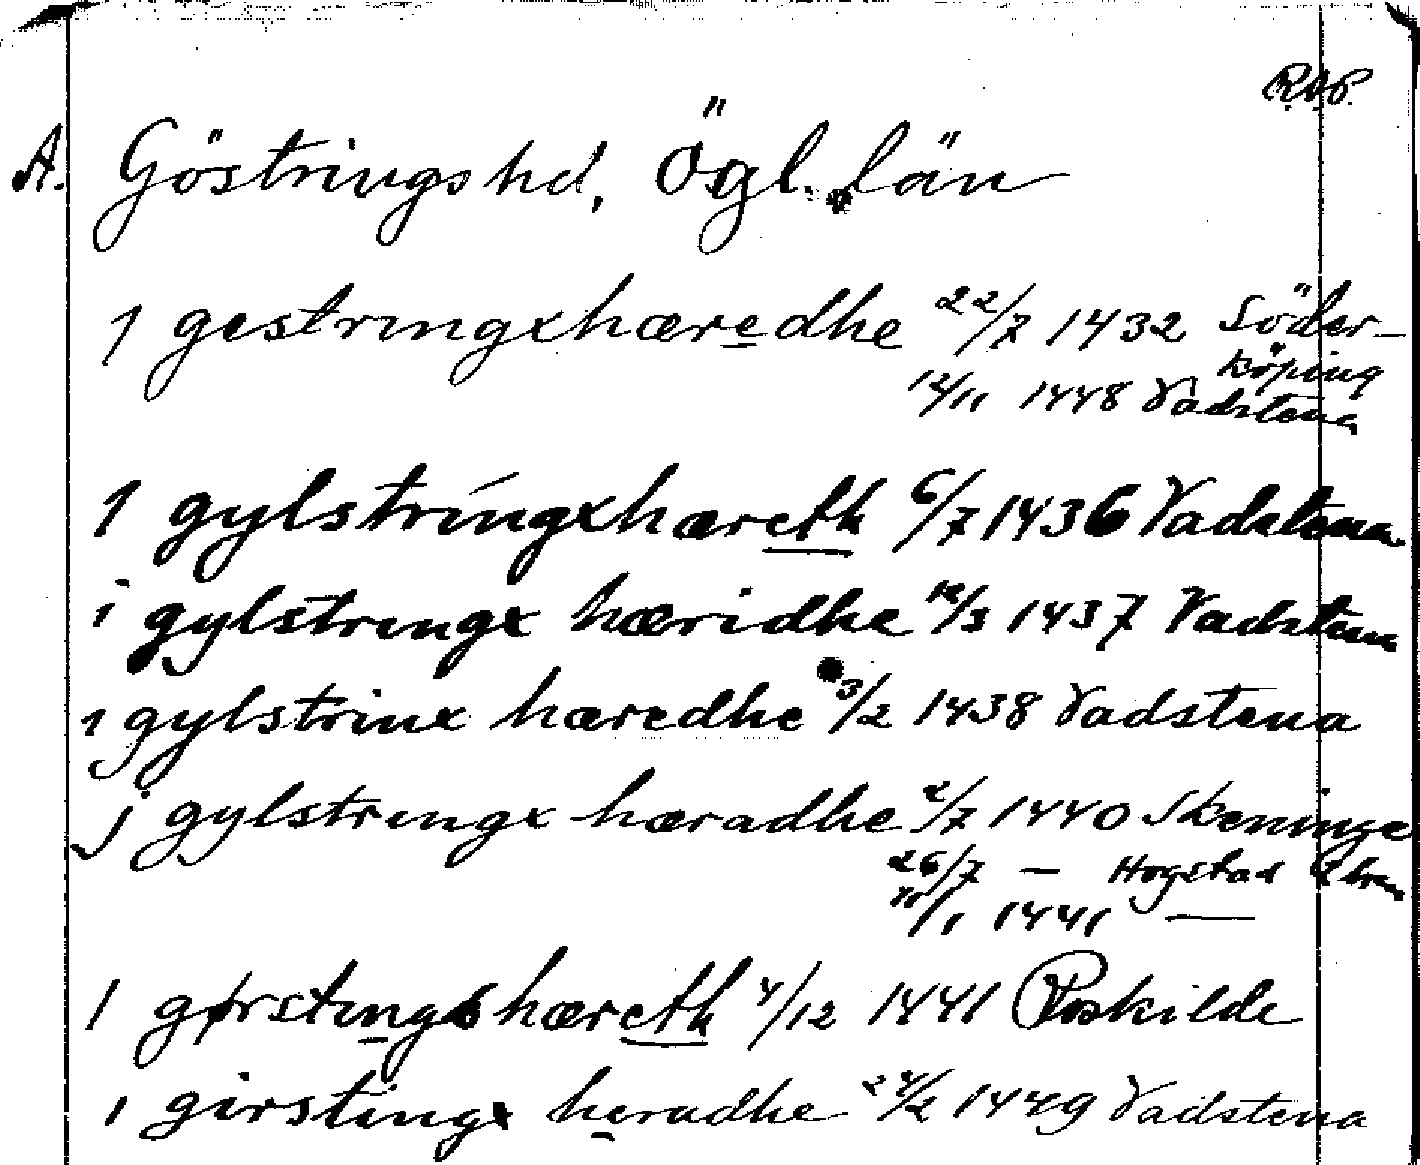 R.A.P.
A. Göstringshd, Ögl. län
J gestringxhæredhe 22/7 1432 Söder-
köping
12/11 1448 Vadstena
J gylstringxhæreth 6/7 1436 Vadstena
i gylstrengx hæridhe 12/3 1437 Vadstena
j gylstrinx hæredhe 3/2 1438 Vadstena
j gylstrengx hæradhe 2/7 1440 Skeninge
26/7 — Hogstad
11/1 1441 —
J gørstingshæreth 4/12 1441 Roskilde
i girstingx heradhe 24/2 1449 Vadstena